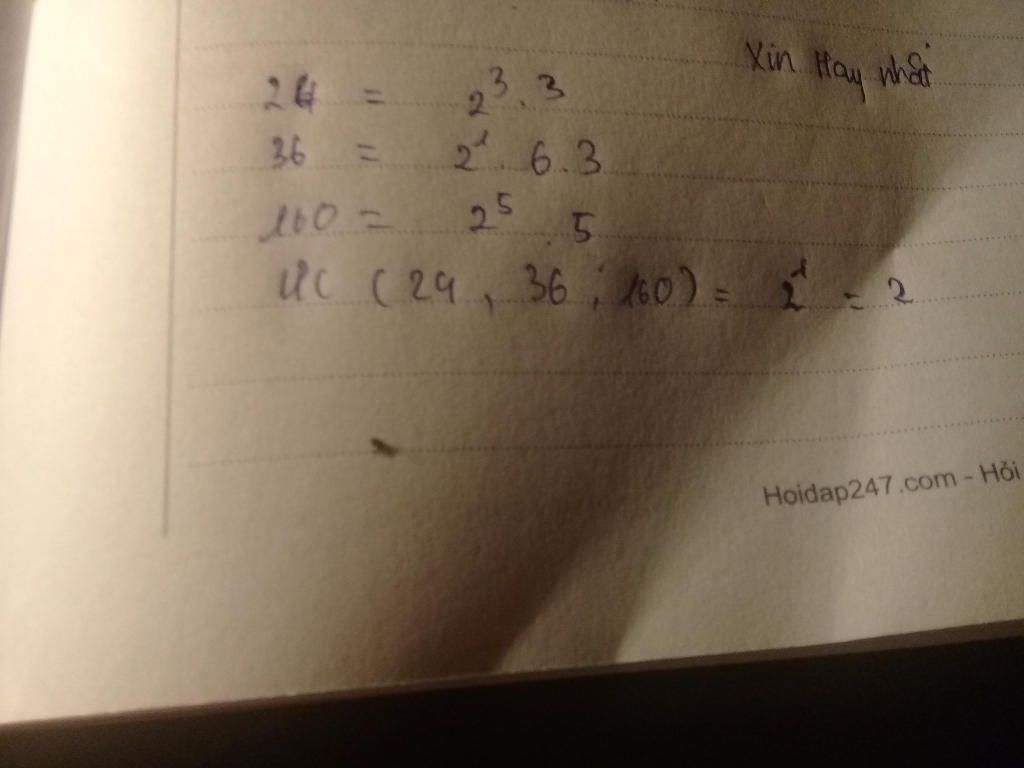 Xin Hay nhất
24 = 2³.3
36 = 2¹.6.3
160 = 2⁵.5
ƯC (24, 36; 160) = 2¹ = 2
Hoidap247.com - Hỏi